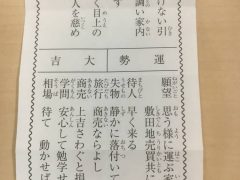 けない引
調い家内
す
く目上の
人を慈め
運勢
大吉
願望 思う様に運ぶ家
敷田地売買共に
待人 早く来る
失物 静かに落付いて
旅行 商売ならよし
商売 上吉さわぐと損
学問 安心して勉学せ
相場 待て 動かせば